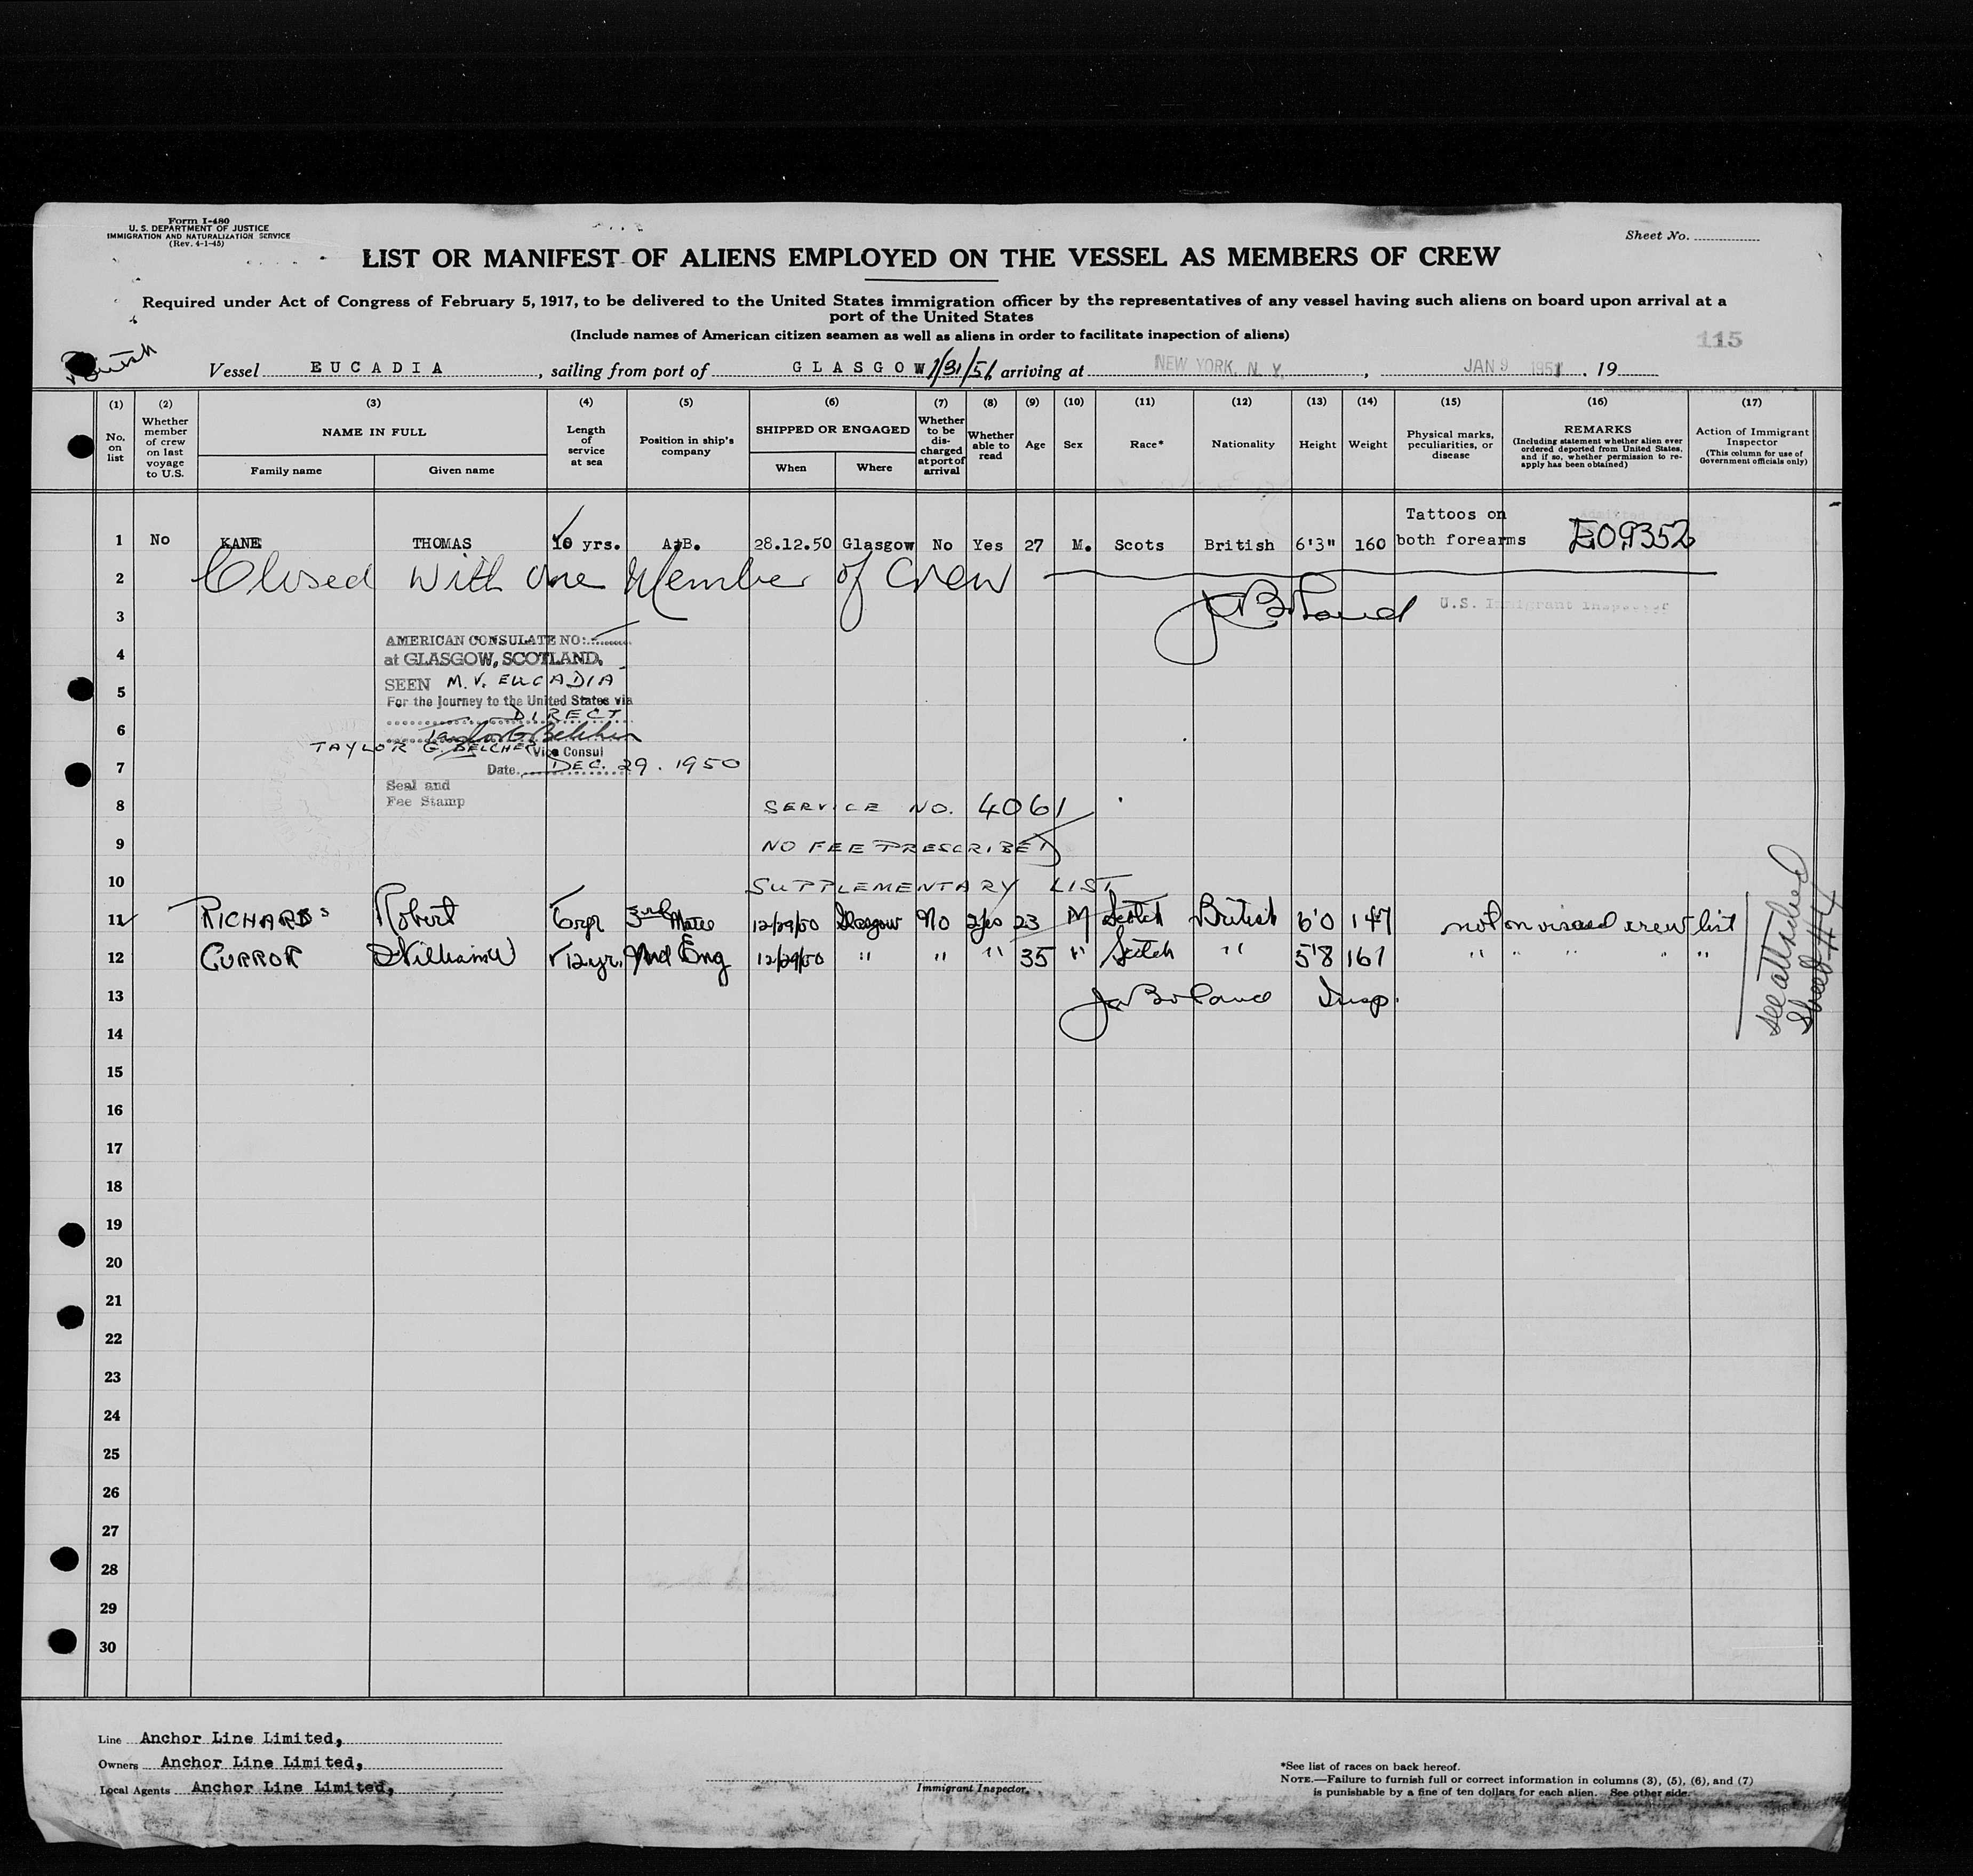 Form I-480
U. S. DEPARTMENT OF JUSTICE
IMMIGRATION AND NATURALIZATION SERVICE
(Rev. 4-1-45)
Sheet No.
LIST OR MANIFEST OF ALIENS EMPLOYED ON THE VESSEL AS MEMBERS OF CREW
Required under Act of Congress of February 5, 1917, to be delivered to the United States immigration officer by the representatives of any vessel having such aliens on board upon arrival at a
port of the United States
(Include names of American citizen seamen as well as aliens in order to facilitate inspection of aliens)
115
British
Vessel EUCADIA, sailing from port of GLASGOW 1/31/51 arriving at NEW YORK, N. Y., JAN 9 1951, 19
(1) (2) (3) (4) (5) (6) (7) (8) (9) (10) (11) (12) (13) (14) (15) (16) (17)
No. on list
Whether member of crew on last voyage to U.S.
NAME IN FULL
Family name Given name
Length of service at sea
Position in ship's company
SHIPPED OR ENGAGED
When Where
Whether to be discharged at port of arrival
Whether able to read
Age
Sex
Race*
Nationality
Height
Weight
Physical marks, peculiarities, or disease
REMARKS
(Including statement whether alien ever ordered deported from United States, and if so, whether permission to reapply has been obtained)
Action of Immigrant Inspector
(This column for use of Government officials only)
1 No KANE THOMAS 10 yrs. A.B. 28.12.50 Glasgow No Yes 27 M. Scots British 6'3" 160 Tattoos on both forearms E09352
2 Closed with one Member of Crew
3 U.S. Immigrant Inspector
AMERICAN CONSULATE NO:
4 at GLASGOW, SCOTLAND.
5 SEEN M.V. EUCADIA
For the journey to the United States via
DIRECT
6 Taylor G. Belcher
TAYLOR G. BELCHER Vice Consul
7 Date DEC. 29. 1950
Seal and
Fee Stamp
8 SERVICE NO. 4061
9 NO FEE PRESCRIBED
10 SUPPLEMENTARY LIST
11 RICHARDS Robert 6 yr 3rd Mate 12/29/50 Glasgow No Yes 23 M Scotch British 6'0 147 not on visaed crew list
12 CURROR William 12 yr. 2nd Eng 12/29/50 " " " 35 " Scotch " 5'8 161 " " " " "
see attached
Sheet #4
13 J Boland Insp.
14
15
16
17
18
19
20
21
22
23
24
25
26
27
28
29
30
Line Anchor Line Limited,
Owners Anchor Line Limited,
Local Agents Anchor Line Limited,
Immigrant Inspector.
*See list of races on back hereof.
NOTE.—Failure to furnish full or correct information in columns (3), (5), (6), and (7)
is punishable by a fine of ten dollars for each alien. See other side.